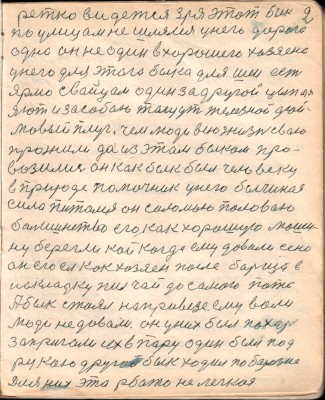 2
ретко видется зря этот бык
по улицам не шлялся у него дорога
одна он не один в хорошего хозяена
у него для этого быка для шеи ест
Ярмо сваицам один за другой цепля
яют и за собою тащут железной дюй-
мовый плуг, чем люди вию жизн сваю
прожили да из этам быком про-
возилис он как бык был человеку
в природе помочник у него бычиная
сила питался он соломаю половаю
балшинство его как хорошую маши-
ну берегли кой когда ему довали сено
он его ел как хозяен после барща в
накладку пил чай до самого пота
А бык стоял на привезе ему воли
люди недовали. он у них был пахар
запрягали их в пару один был под
рукаю другой бык ходил по барозне
Для них эта рбота не легкая